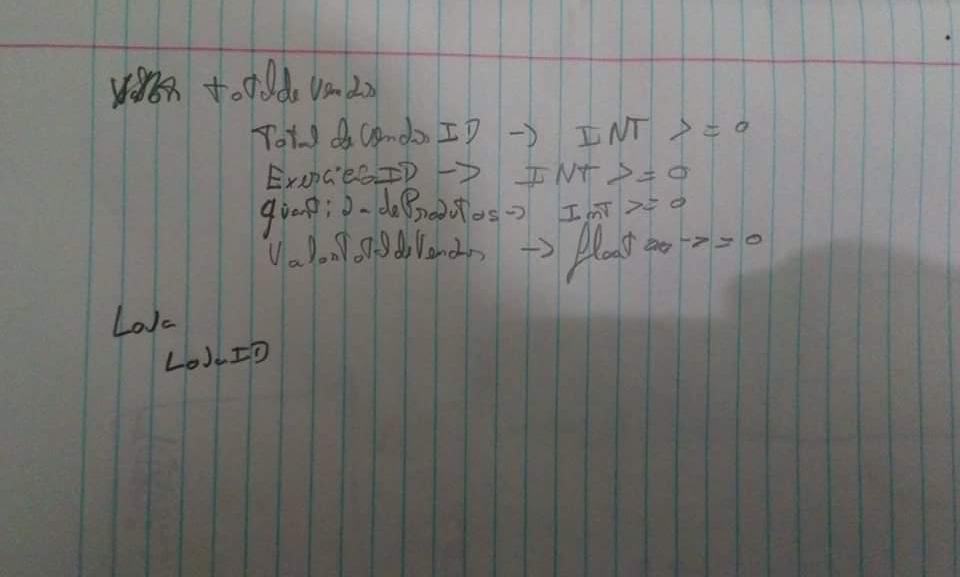 total de Vendas
Total de Vendas ID -> INT >= 0
Exercicio ID -> INT >= 0
quanti da de Produtos -> Int >= 0
Valor Total de Vendas -> float >= 0
Loja
Loja ID